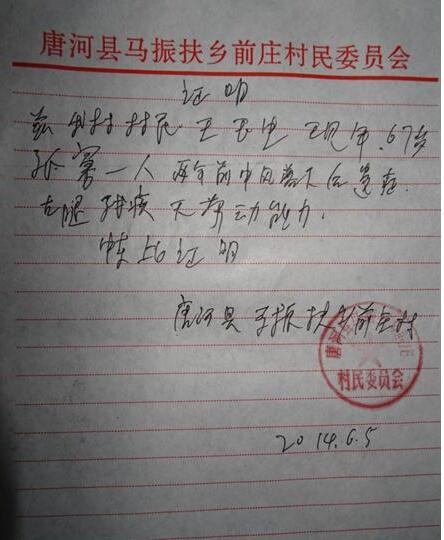 唐河县马振扶乡前庄村民委员会
证明
兹 我村村民 王玉 现年.67岁
孤寡一人 两年前中风落下后遗症.
左腿残疾 无劳动能力.
特此证明
唐河县 马振扶乡前庄村
唐河
村民委员会
2014.6.5